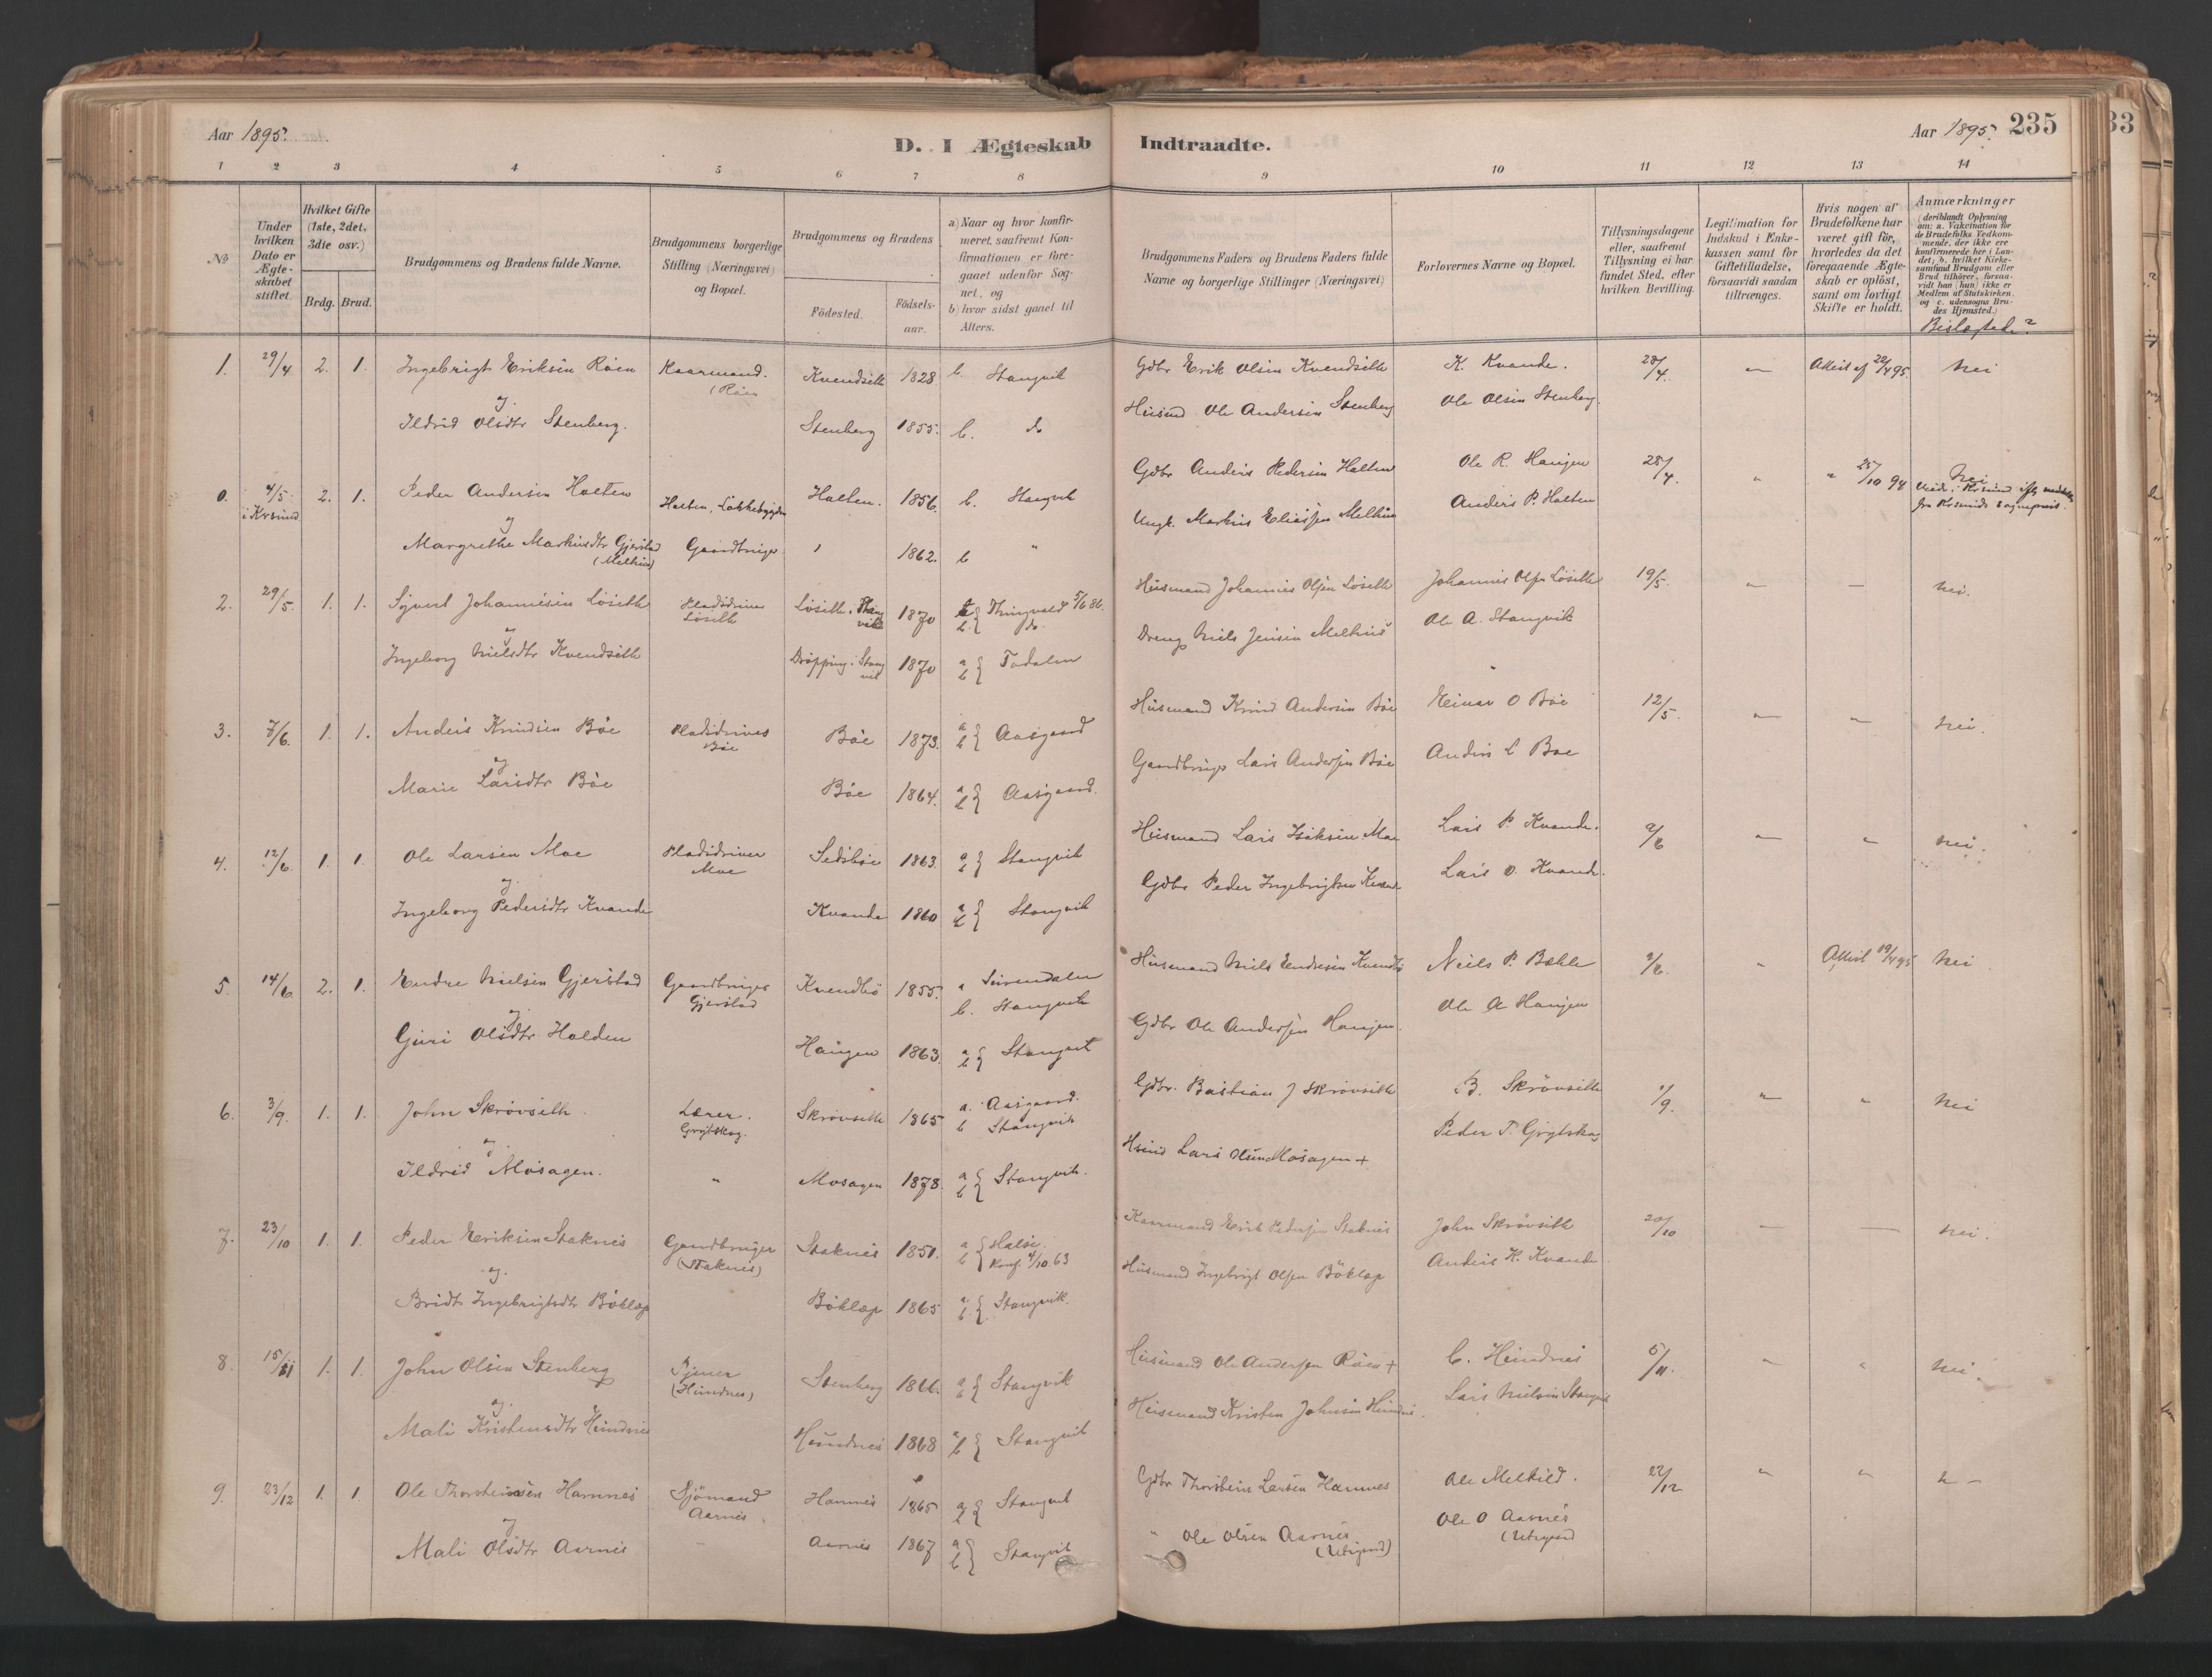 Aar 1895.
D. I Ægteskab
Indtraadte.
Aar 1895. 235
33
1 2 3 4 5 6 7 8 9 10 11 12 13 14
No
Under hvilken Dato er Ægteskabet stiftet.
Hvilket Gifte (1ste, 2det, 3die osv.)
Brdg. Brud.
Brudgommens og Brudens fulde Navne.
Brudgommens borgerlige Stilling (Næringsvei) og Bopæl.
Brudgommens og Brudens
Födested.
Födsels-aar.
a) Naar og hvor konfirmeret, saafremt Konfirmationen er foregaaet udenfor Sognet, og
b) hvor sidst gaaet til Alters.
Brudgommens Faders og Brudens Faders fulde Navne og borgerlige Stillinger (Næringsvei)
Forlovernes Navne og Bopæl.
Tillysningsdagene eller, saafremt Tillysning ei har fundet Sted, efter hvilken Bevilling.
Legitimation for Indskud i Enkekassen samt for Giftetilladelse, forsaavidt saadan tiltrænges.
Hvis nogen af Brudefolkene har været gift för, hvorledes da det foregaaende Ægteskab er oplöst, samt om lovligt Skifte er holdt.
Anmærkninger
(deriblandt Oplysning om: a. Vakcination for de Brudefolks Vedkommende, der ikke ere konfirmerede her i Landet; b. hvilket Kirkesamfund Brudgom eller Brud tilhörer, forsaavidt han (hun) ikke er Medlem af Statskirken. og c. udensogns Brudes Hjemsted.)
Beslægtede?
1. 29/4 2. 1. Ingebrigt Eriksen Röen Kaarmand. Kvendseth 1828 b. Stangvik Gdbr Erik Olsen Kvendseth K. Kvande. 28/4. " Attest af 22/4 95. Nei
(Röen
og
Ildrid Olsdtr Stenberg. Stenberg 1855. b. do Husmd Ole Andersen Stenberg Ole Olsen Stenberg.
0. 4/5 2. 1. Peder Andersen Halten Halten. 1856. b. Stangvik Gdbr Anders Pedersen Halten Ole R. Haugen 28/4. " " 25/10 94 Nei
i Krsund
og
Margrethe Markusdtr Gjerstad Gaardbruger 1862. b " Ungk. Markus Eliassen Melhus Anders P. Halten
(Melhus)
2. 29/5. 1. 1. Syvert Johannesen Löseth Pladsdriver Löseth, Stangvik 1870 Thingvold 5/6 86. Husmand Johannes Olsen Löseth Johannes Olsen Löseth 19/5. " — nei.
Löseth b. do.
og
Ingeborg Nielsdtr Kvendseth Dröpping i Stangvik 1870 a b Todalen Dreng Niels Jensen Melhus Ole A. Stangvik
3. 7/6. 1. 1. Anders Knudsen Böe Pladsdriver Böe 1873. a b Aasgaard Husmand Knud Andersen Böe Einar O Böe 12/5. " " nei.
Böe
og
Marie Larsdtr Böe Böe 1864. a b Aasgaard. Gaardbruger Lars Andersen Böe Anders L Boe
4. 12/6. 1. 1. Ole Larsen Moe Pladsdriver 1863. a b Stangvik Husmand Lars Isaksen Moe Lars P. Kvande. 9/6 " " nei.
Moe
og
Ingeborg Pedersdtr Kvande Kvande 1860 a b Stangvik Gdbr Peder Ingebrigtsen Kvande Lars O. Kvande.
5. 14/6. 2. 1. Endre Nielsen Gjerstad Gaardbruger Kvendbö 1855. a Surendalen Husmand Niels Endresen Kvendbö Niels P. Bæhle 9/6. " Attest 19/4 95 Nei
Gjerstad b. Stangvik
og
Guri Olsdtr Halden Haugen 1863. a b Stangvik Gdbr Ole Andersen Haugen. Ole A Haugen
6. 3/9. 1. 1. John Skrövseth. Lærer. Skrövseth 1865 a. Aasgaard. Gdbr. Bastian J Skrövseth B. Skrövseth 1/9. " " Nei
Grytskog. b Stangvik
og
Ildrid Mosagen. " Mosagen 1873. a b Stangvik. Hsmd Lars Olsen Mosagen + Peder T. Grytskog
7. 23/10 1. 1. Peder Eriksen Staknes Gaardbruger Staknes 1851. a b Halse. Kaarmand Erik Pedersen Staknes John Skrövseth 20/10 — — nei.
(Staknes) Konf. 4/10 63
og.
Bridt Ingebrigtsdtr Böklep Böklep 1865 a b. Stangvik. Husmand Ingebrigt Olsen Böklep Anders K. Kvande
8. 15/11 1. 1. John Olsen Stenberg Tjener Stenberg 1866. a b Stangvik Husmand Ole Andersen Röen + C. Hendnes 5/11. " " nei.
(Hendnes)
og
Mali Kristensdtr Hendnes Hendnes 1868 a b Stangvik Husmand Kristen Johnsen Hendnes. Lars Nielsen Stangvik
9. 23/12 1. 1 Ole Thorsteinsen Hamnes Sjömand Hamnes 1865 a b Stangvik Gdbr Thorstein Larsen Hamnes Ole Melkild. 22/12 " " " —
Aarnes.
og
Mali Olsdtr Aarnes — Aarnes 1867 a b Stangvik " Ole Olsen Aarnes Ole O Aarnes
(Utigard) (Utigard